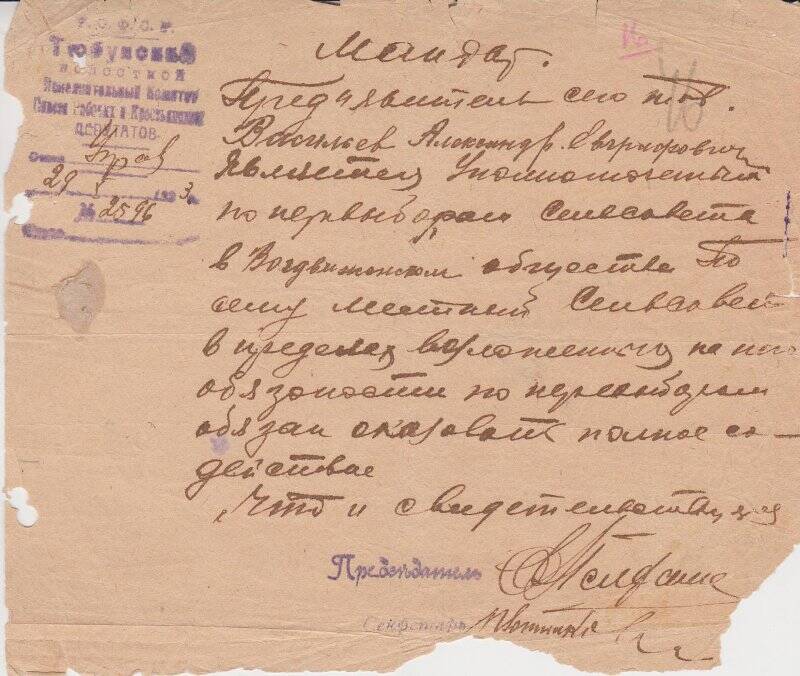 Р.С.Ф.С.Р.
Тюбукский
волостной
Исполнительный Комитет
Совета Рабочих и Крестьянских
ДЕПУТАТОВ.
29 1923 г.
№ 2596
16
16
Мандат.
Предъявитель сего тов.
Васильев Александр
Является Уполномоченный
по перевыборам Сельсовета
в Воздвиженском общества По
сему местный Сельсовет
в пределах возложенного на него
обязаности по перевыборам
обязан оказовать полное со-
действие
Что и свидетельствуется
Председатель
Секретарь